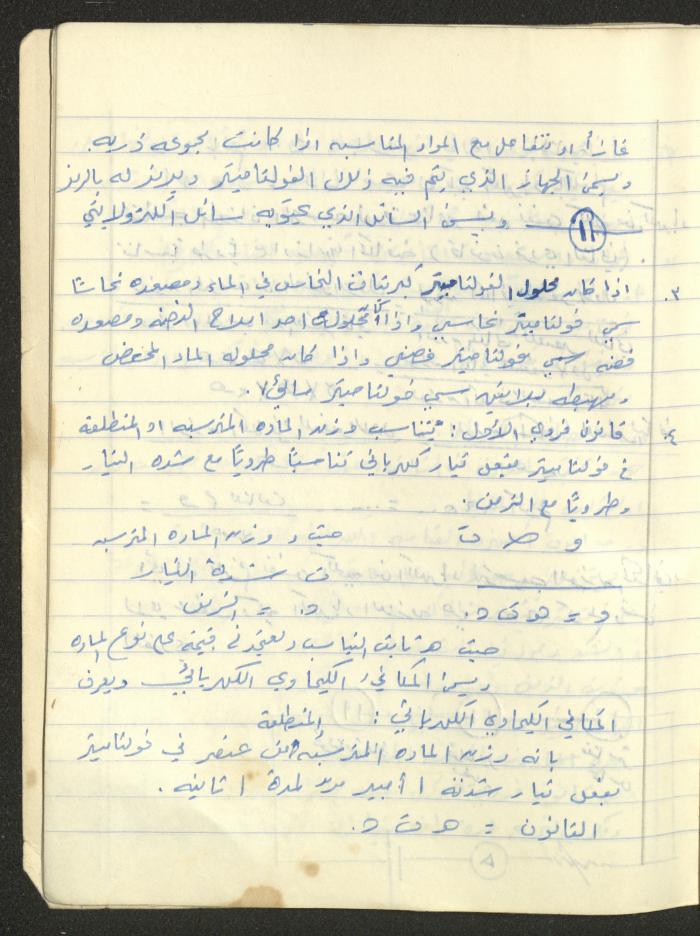 غازاً او تتفاعل مع المواد المناسبه اذا كانت مجموعه ذريه.
ويسمى الجهاز الذي يتم فيه ذلك الفولتاميتر ويرمز له بالرمز
ويسمى السائل الذي يحتويه سائل الكتروليتي
٣. اذا كان محلول الفولتاميتر كبريتات النحاس في الماء ومصعده نحاسًا
سمي فولتاميتر نحاسي واذا كان محلوله احد املاح الفضه ومصعده
فضه سمي فولتاميتر فضي واذا كان محلوله الماء المحمض
سمي فولتاميتر مائي.
٤. قانون فردي الاول: يتناسب وزن الماده المترسبه او المنطلقة
في فولتاميتر بفعل تيار كهربائي تناسبًا طرديًا مع شده التيار
وطرديًا مع الزمن.
حيث و وزن الماده المترسبه
ت: شدة التيار
و = هـ ت د. د. = الزمن
حيث هـ ثابت التناسب وتعتمد في قيمته على نوع الماده
ويسمى المكافئ الكيماوي الكهربائي ويعرف
المكافئ الكيماوي الكهربائي:
بانه وزن الماده المترسبه او المنطلقة من عنصر في فولتاميتر
بفعل تيار شدته ١ أمبير لمدة ١ ثانيه.
القانون = هـ ت د.